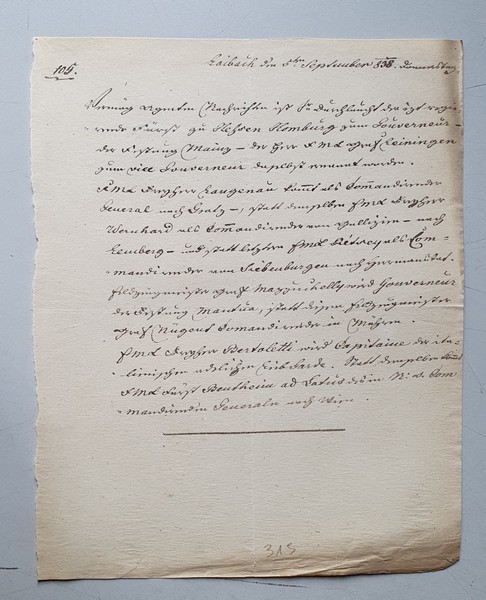 105.
Laibach den 5ten September 838. Donnerstag
Vermög Agenten Nachrichten ist Se Durchlaucht der itzt regie-
rende Fürst zu Hessen Homburg zum Gouverneur
der Festung Mainz – der Herr FML Graf Leiningen
zum vice Gouverneur daselbst ernannt worden.
FML Freyherr Langenau kömt als Comandirender
General nach Gratz –, statt demselben FML Freyherr
als Comandirender von Gallizien – nach
Lemberg – und statt letztern FML als Com-
mandirender von Siebenbürgen nach Hermanstat.
Feldzeugmeister Graf Mazzuchelly wird Gouverneur
der Festung Mantua, statt diesen Feldzeugmeister
Graf Nugent Comandirender in Mähren.
FML Freyherr Bertoletti wird Capitaine der ita-
lienischen adelichen Leib Garde. Statt demselben kömt
FML Fürst Bentheim ad Latus des N. Ö. Com
mandirenden Generalen nach Wien.
315